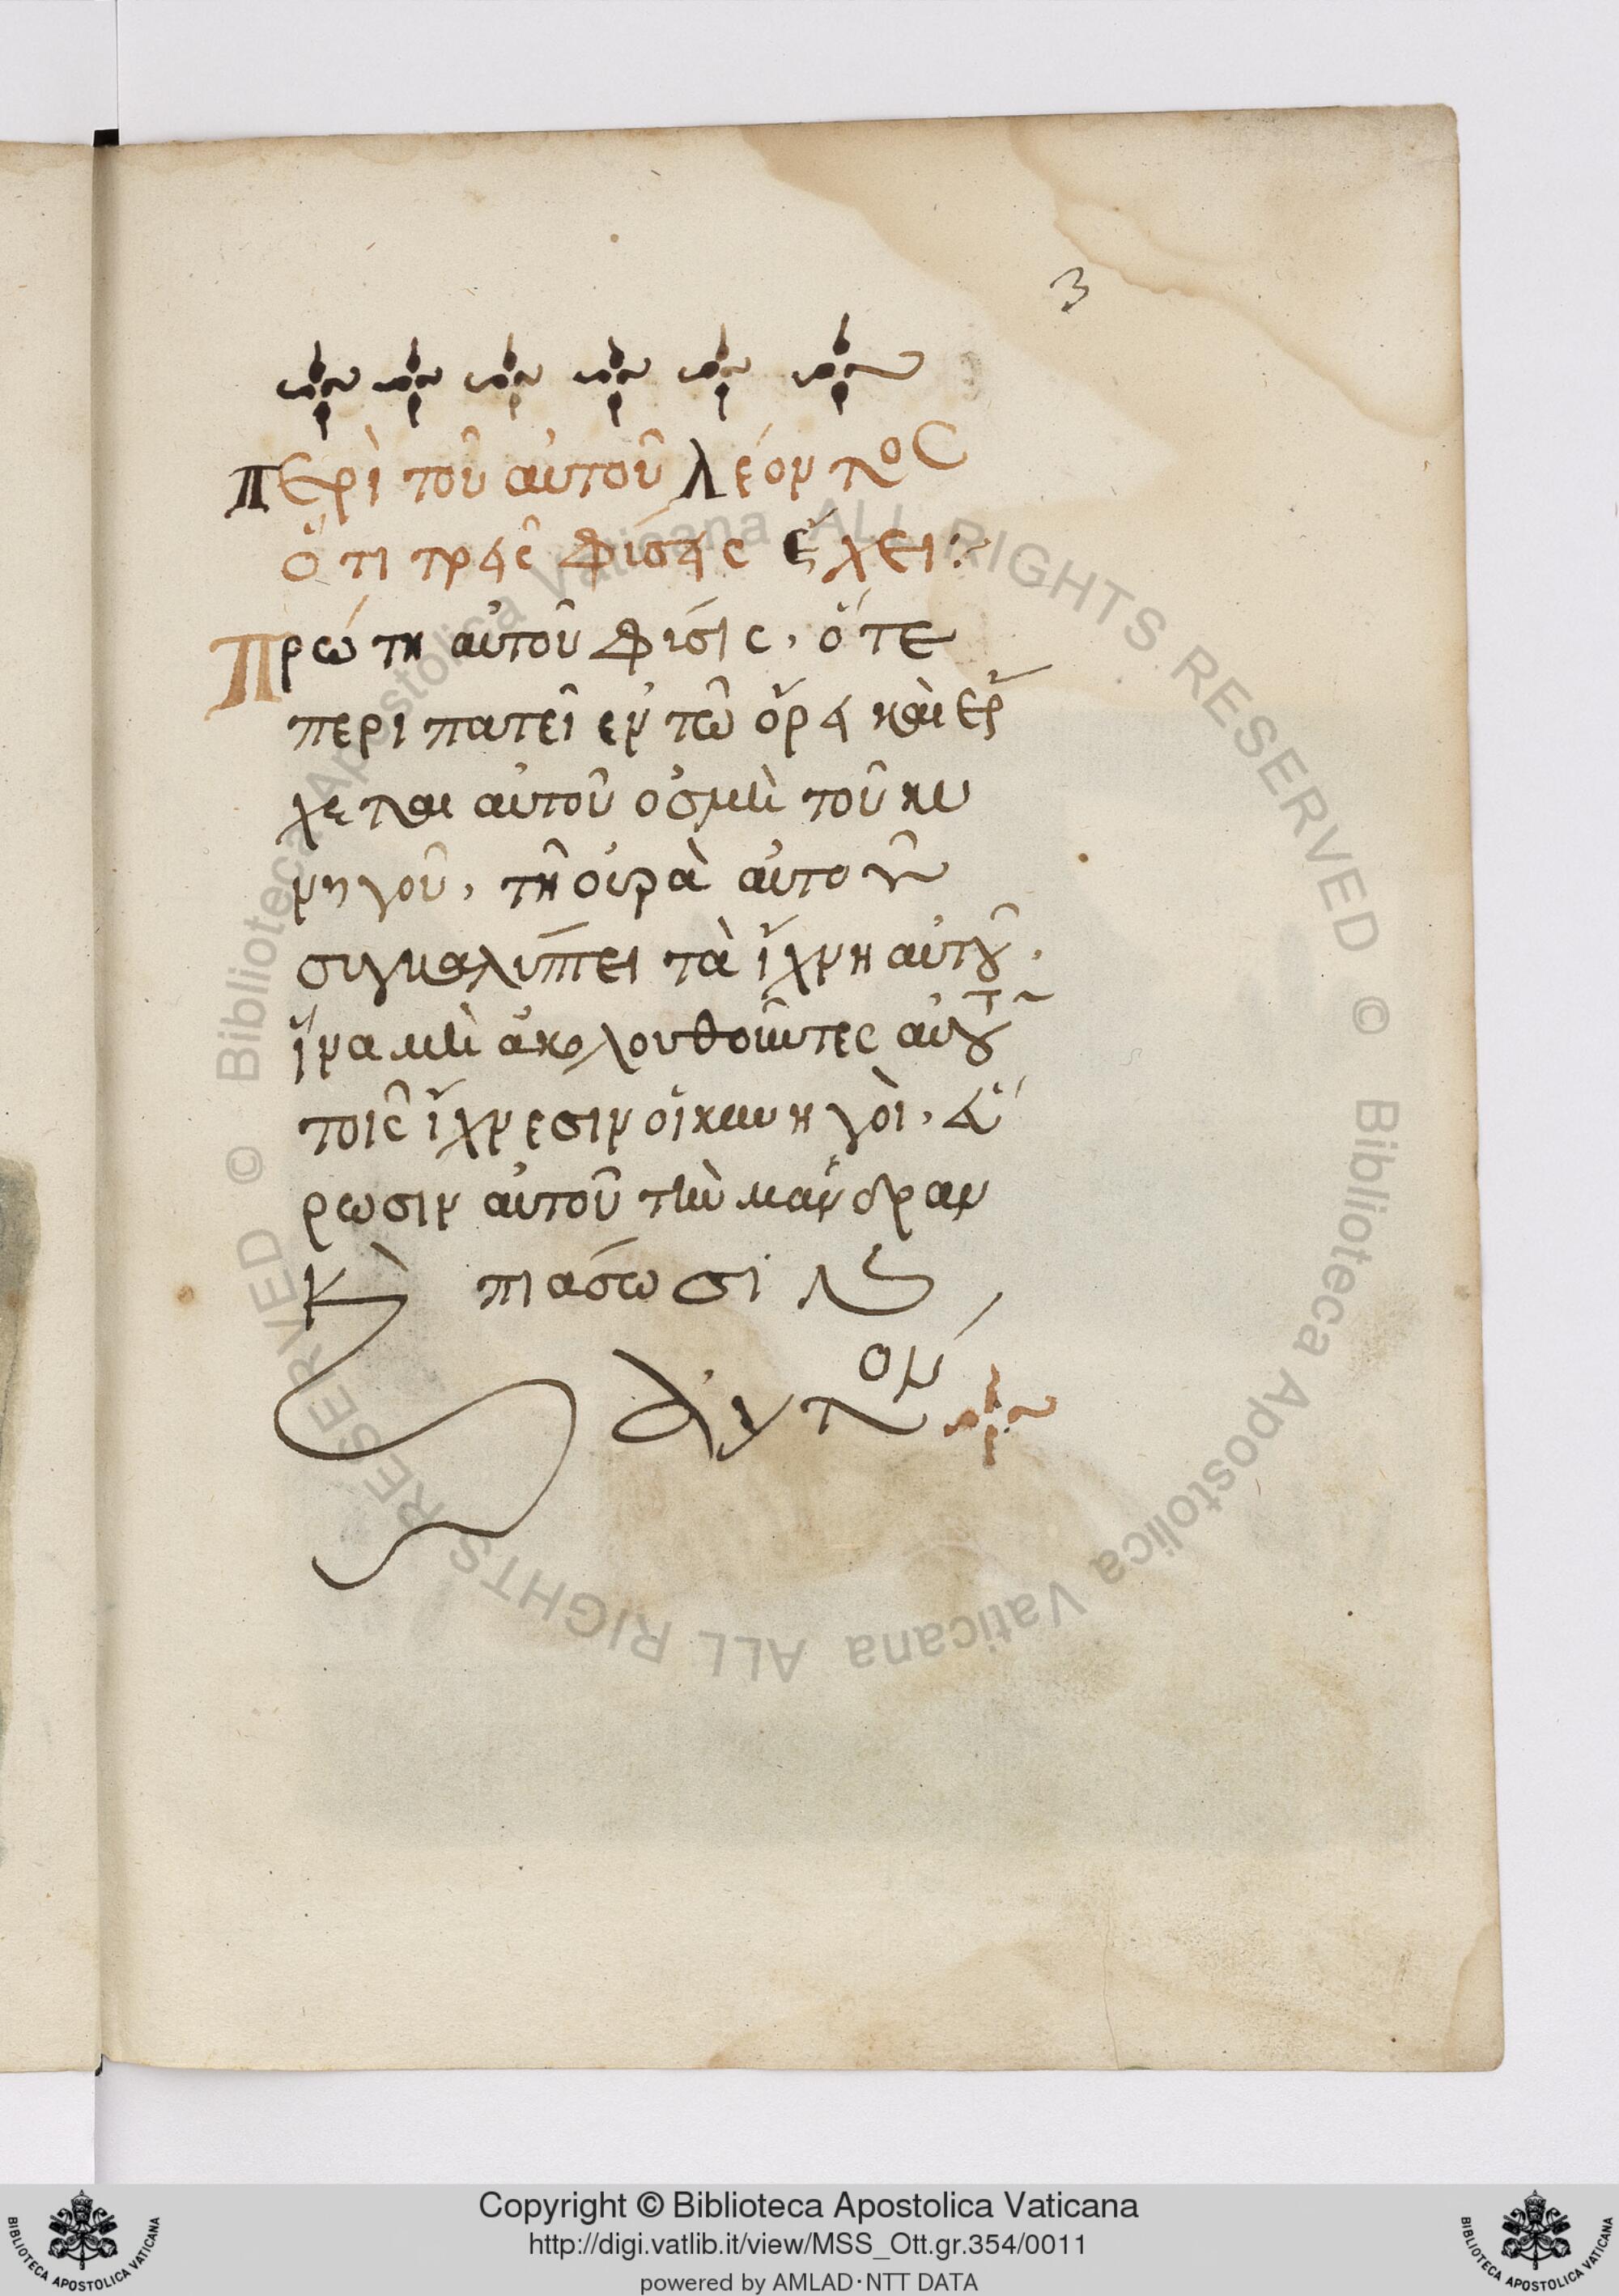 3
Περὶ τοῦ αὐτοῦ λέοντος
ὅτι τρεῖς φίσεις ἔχει:
Πρώτη αὐτοῦ φίσις, ὅτε
περιπατεῖ εν τῶ ὄρει καὶ ἔρ
χεται αὐτοῦ οσμὴ τοῦ κυ
νηγοῦ, τῆ οὐρὰ αὐτοῦ
συγκαλύπτει τὰ ἴχνη αὐτοῦ.
ἵνα μὴ ἀκολουθοῦντες αὐτοῦ
τοῖς ἴχνεσιν οἱ κυνηγοὶ, εὕ
ρωσιν αὐτοῦ τὴν μάνδραν
κὲ πιάσωσι
αὐτόν
© Biblioteca Apostolica Vaticana ALL RIGHTS RESERVED
© Biblioteca Apostolica Vaticana ALL RIGHTS RESERVED
Copyright © Biblioteca Apostolica Vaticana
http://digi.vatlib.it/view/MSS_Ott.gr.354/0011
powered by AMLAD·NTT DATA
BIBLIOTECA APOSTOLICA VATICANA
BIBLIOTECA APOSTOLICA VATICANA